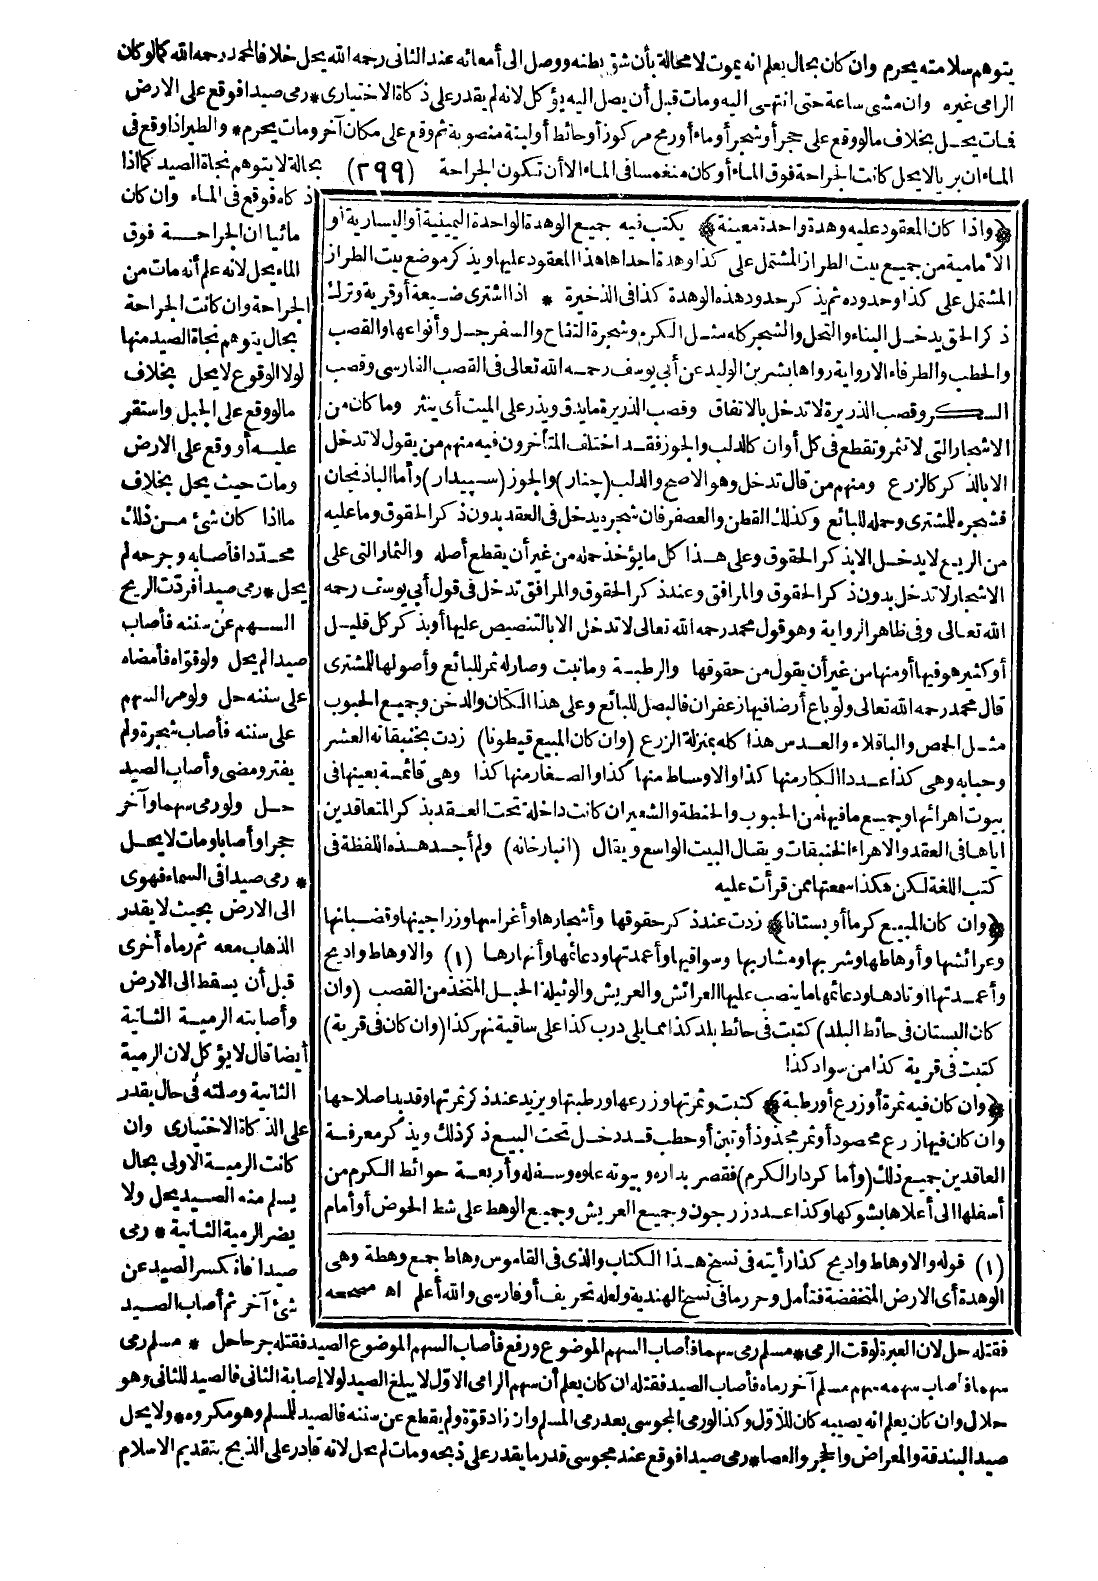 يتوهم سلامته يحرم وان كان بحال يعلم انه يموت لا محالة بأن شق بطنه ووصل الى أمعائه عند الثانى رحمه الله يحل خلافا لمحمد رحمه الله كما لو كان
الرامى غيره وان مشى ساعة حتى انتهى اليه ومات قبل أن يصل اليه يؤكل لانه لم يقدر على ذكاة الاختيارى * رمى صيدا فوقع على الارض
فمات يحل بخلاف ما لو وقع على حجر أو شجر أو ماء أو رمح مركوز أو حائط أو لبنة منصوبة ثم وقع على مكان آخر ومات يحرم * والطير اذا وقع فى
الماء ان بريا لا يحل كانت الجراحة فوق الماء أو كان منغمسا فى الماء الا أن تكون الجراحة (٣٩٩) بحالة لا يتوهم نجاة الصيد كما اذا
ذكاه فوقع فى الماء وان كان
مائيا ان الجراحة فوق
الماء يحل لانه علم أنه مات من
الجراحة وان كانت الجراحة
بحال يتوهم نجاة الصيد منها
لولا الوقوع لا يحل بخلاف
ما لو وقع على الجبل واستقر
عليه أو وقع على الارض
ومات حيث يحل بخلاف
ما اذا كان شئ من ذلك
محددا فأصابه وجرحه لم
يحل * رمى صيدا فردت الريح
السهم عن سننه فأصاب
صيدا لم يحل ولو قواه فأمضاه
على سننه حل ولو مر السهم
على سننه فأصاب شجرة ولم
يفتر ومضى وأصاب الصيد
حل ولو رمى سهما وآخر
حجرا وأصابا ومات لا يحل
* رمى صيدا فى السماء فهوى
الى الارض بحيث لا يقدر
الذهاب معه ثم رماه أخرى
قبل أن يسقط الى الارض
وأصابته الرمية الثانية
أيضا قال لا يؤكل لان الرمية
الثانية وصلته فى حال يقدر
على الذكاة الاختيارى وان
كانت الرمية الاولى بحال
يسلم منه الصيد يحل ولا
يضر الرمية الثانية * رمى
صيدا فانكسر الصيد عن
شئ آخر ثم أصاب الصيد
﴿واذا كان المعقود عليه وهدة واحدة معينة﴾ يكتب فيه جميع الوهدة الواحدة اليمينية أو اليسارية أو
الأمامية من جميع بيت الطراز المشتمل على كذا وهدة احداها هذا المعقود عليها ويذكر موضع بيت الطراز
المشتمل على كذا وحدوده ثم يذكر حدود هذه الوهدة كذا فى الذخيرة * اذا اشترى ضيعة أو قرية وترك
ذكر الحق يدخل البناء والنخل والشجر كله مثل الكرم وشجرة التفاح والسفرجل وأنواعها والقصب
والحطب والطرفاء الا رواية رواها بشر بن الوليد عن أبى يوسف رحمه الله تعالى فى القصب الفارسى وقصب
السكر وقصب الذريرة لا تدخل بالاتفاق وقصب الذريرة ما يدق ويذر على الميت أى ينثر وما كان من
الاشجار التى لا تثمر وتقطع فى كل أوان كالدلب والجوز فقد اختلف المتأخرون فيه منهم من يقول لا تدخل
الا بالذكر كالزرع ومنهم من قال تدخل وهو الاصح والدلب (چنار) والجوز (سپيدار) وأما الباذنجان
فشجره للمشترى وحمله للبائع وكذلك القطن والعصفر فان شجره يدخل فى العقد بدون ذكر الحقوق وما عليه
من الريع لا يدخل الا بذكر الحقوق وعلى هذا كل ما يؤخذ حمله من غير أن يقطع أصله والثمار التى على
الاشجار لا تدخل بدون ذكر الحقوق والمرافق وعند ذكر الحقوق والمرافق تدخل فى قول أبى يوسف رحمه
الله تعالى وفى ظاهر الرواية وهو قول محمد رحمه الله تعالى لا تدخل الا بالتنصيص عليها أو بذكر كل قليل
أو كثير هو فيها أو منها من غير أن يقول من حقوقها والرطبة وما نبت وصار له ثمر للبائع وأصولها للمشترى
قال محمد رحمه الله تعالى ولو باع أرضا فيها زعفران فالبصل للبائع وعلى هذا الكتان والدخن وجميع الحبوب
مثل الحمص والباقلاء والعدس هذا كله بمنزلة الزرع (وان كان المبيع قيطونا) زدت بخنبقاته العشر
وحبابه وهى كذا عددا الكبار منها كذا والاوساط منها كذا والصغار منها كذا وهى قائمة بعينها فى
بيوت اهرائها وجميع ما فيها من الحبوب والحنطة والشعير ان كانت داخلة تحت العقد بذكر المتعاقدين
اياها فى العقد والاهراء الخنبقات ويقال البيت الواسع ويقال (انبارخانه) ولم أجد هذه اللفظة فى
كتب اللغة لكن هكذا سمعتها ممن قرأت عليه
﴿وان كان المبيع كرما أو بستانا﴾ زدت عند ذكر حقوقها وأشجارها وأغراسها وزراجينها وقضبانها
وعرائشها وأوهاطها وشربها ومشاربها وسواقيها وأعمدتها ودعائمها وأنهارها (١) والاوهاط واديج
وأعمدتها أوتادها ودعائمها ما ينصب عليها العرائش والعريش والوثيلة الحبل المتخذ من القصب (وان
كان البستان فى حائط البلد) كتبت فى حائط بلد كذا مما يلى درب كذا على ساقية نهر كذا (وان كان فى قرية)
كتبت فى قرية كذا من سواد كذا
﴿وان كان فيه ثمرة أو زرع أو رطبة﴾ كتبت وثمرتها وزرعها ورطبتها ويزيد عند ذكر ثمرتها وقد بدا صلاحها
وان كان فيها زرع محصود أو ثمر مجذوذ أو تبن أو حطب قد دخل تحت البيع ذكر ذلك ويذكر معرفة
العاقدين جميع ذلك (وأما كردار الكرم) فقصر بداره وبيوته علوه وسفله وأربعة حوائط الكرم من
أسفلها الى أعلاها بشوكها وكذا عدد زرجون وجميع العريش وجميع الوهط على شط الحوض أو أمام
(١) قوله والاوهاط واديج كذا رأيته فى نسخ هذا الكتاب والذى فى القاموس وهاط جمع وهطة وهى
الوهدة أى الارض المنخفضة فتأمل وحرر ما فى نسخ الهندية ولعله تحريف أو فارسى والله أعلم اه مصححه
فقتله حل لان العبرة لوقت الرمى * مسلم رمى سهما فأصاب السهم الموضوع ورفع فأصاب السهم الموضوع الصيد فقتله جرحا حل * مسلم رمى
سهما فأصاب سهمه سهم مسلم آخر رماه فأصاب الصيد فقتله ان كان يعلم أن سهم الرامى الاول لا يبلغ الصيد لولا إصابة الثانى فالصيد للثانى وهو
حلال وان كان يعلم انه يصيبه كان للأول وكذا لو رمى المجوسى بعد رمى المسلم وان زاد قوة ولم يقطع عن سننه فالصيد للمسلم وهو مكروه * ولا يحل
صيد البندقة والمعراض والحجر والعصا * رمى صيدا فوقع عند مجوسى قدر ما يقدر على ذبحه ومات لم يحل لانه قادر على الذبح بتقديم الاسلام